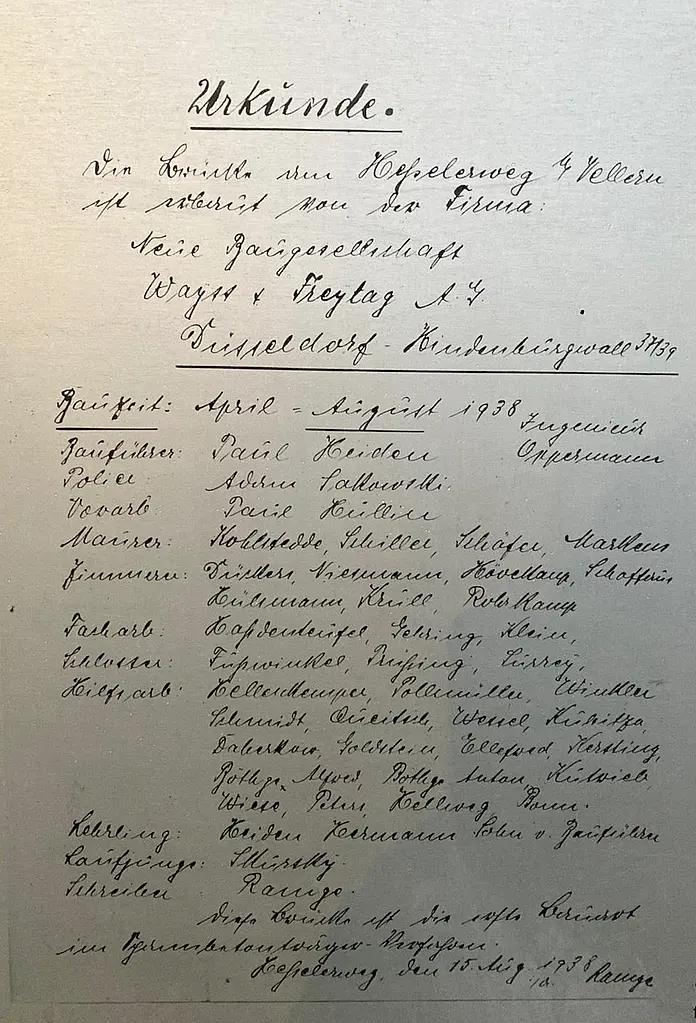 Urkunde.
Die Brücke am Hesselerweg Vellern
ist erbaut von der Firma:
Neue Baugesellschaft
Wayss & Freytag A.G
Düsseldorf - Hindenburgwall 37/39
Bauzeit: April = August 1938
Ingenieur
Oppermann
Bauführer: Paul Heiden
Polier: Adam Sakowski.
Vorarb. Paul Hüllin
Maurer: Kohlstedde, Schiller, Schäfer, Markens
Zimmerer: Dückers, Niesmann, Hövekamp, Schaffaus
Hülsmann, Krull, Rohrkamp
Facharb: Haßdenteufel, Gehring, Klein,
Schlosser: Fußwinkel, Prußing, Surrey,
Hilfsarb: Hellenkemper, Pollmüller, Winkler
Schmidt, Queitsch, Wessel, Kubitza,
Daberkow, Goldstein, Kersting,
Röthge Alfred, Röthge Anton, Kutwieb,
Wiese, Peters, Hellweg Bonn.
Lehrling: Heiden Hermann Sohn v. Bauführer
Laufjunge: Skursky.
Schreiber Ramge.
Diese Brücke ist die erste Bauart
im Spannbetonträger-Verfahren.
Hesselerweg, den 15. Aug. 1938 Ramge